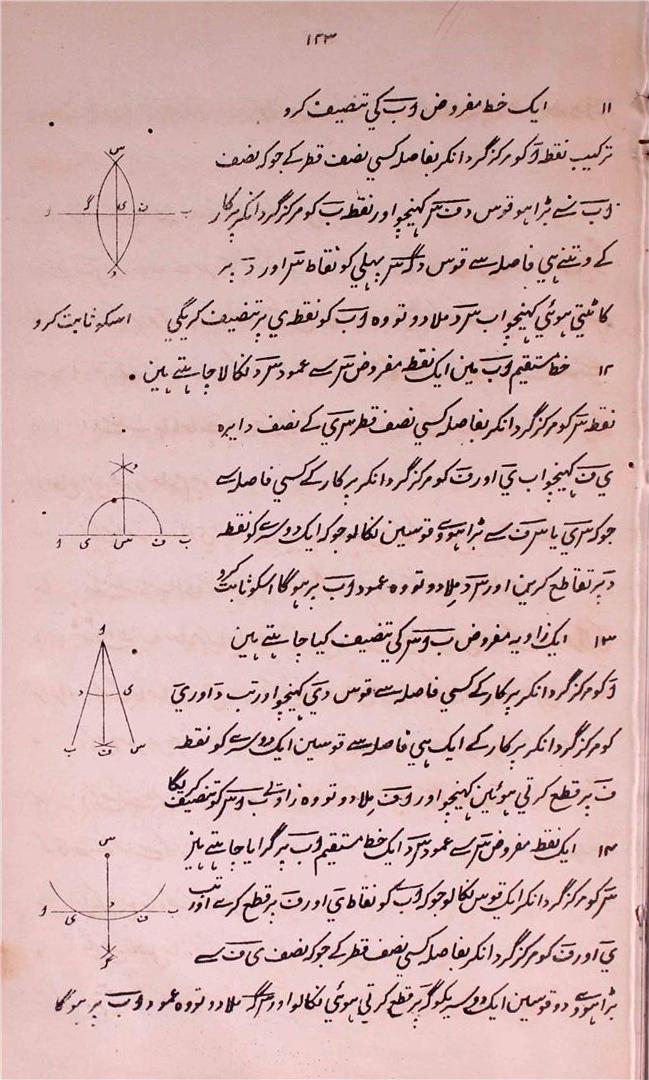 ۱۴۳
۱۱ ایک خط مفروض اَب کي تنصیف کرو
ترکیب نقطہ اَ کو مرکز گردانکر بفاصلہ کسي نصف قطر کے جو کہ نصف
اَب سے بڑا ہو قوس دف سَ کہینچو اور نقطہ بَ کو مرکز گردانکر پرکار
کے وتنے هي فاصلہ سے قوس دگ سَ پہلي کو نقاط سَ اور دَ پر
کاٹتي هوئي کہینچو اب سَ دَ ملا دو تو وہ اَب کو نقطہ ي پر تنصیف کریگي اسکو ثابت کرو
۱۲ خط مستقیم اَب مین ایک نقطہ مفروض سَ سے عمود سَ دَ نکالا چاهتے هین
نقطہ سَ کو مرکز گردانکر بفاصلہ کسي نصف قطر سَ ي کے نصف دایرہ
ي فَ کہینچو اب ي اور فَ کو مرکز گردانکر پرکار کے کسي فاصلہ سے
جو کہ سَ ي یا سَ فَ سے بڑا هووے قوسین نکالو جو کہ ایک دوسرے کو نقطہ
دَ پر تقاطع کرین اور سَ دَ ملا دو تو وہ عمود اَب پر هوگا اسکو ثابت کرو
۱۳ ایک زاویہ مفروض بَ اَ سَ کي تنصیف کیا چاهتے هین
اَ کو مرکز گردانکر پرکار کے کسي فاصلہ سے قوس دي کہینچو اور تب دَ اور ي
کو مرکز گردانکر پرکار کے ایک هي فاصلہ سے قوسین ایک دوسرے کو نقطہ
فَ پر قطع کرتي هوئین کہینچو اور اَ فَ ملا دو تو وہ زاویے بَ اَ سَ کو تنصیف کریگا
۱۴ ایک نقطہ مفروض سَ سے عمود سَ دَ ایک خط مستقیم اَب پر گرایا چاهتے هین
سَ کو مرکز گردانکر ایک قوس نکالو جو کہ اَب کو نقاط ي اور فَ پر قطع کرے اور تب
ي اور فَ کو مرکز گردانکر بفاصلہ کسي نصف قطر کے جو کہ نصف ي فَ سے
بڑا هووے دو قوسین ایک دوسریکو گَ پر قطع کرتي هوئي نکالو اور سَ گَ ملا دو تو وہ عمود اَب پر هوگا
س
ا گ ي ف ب
د
د
ا ي س ف ب
ا
د ي
ب ف س
س
ا ي د ف ب
گ